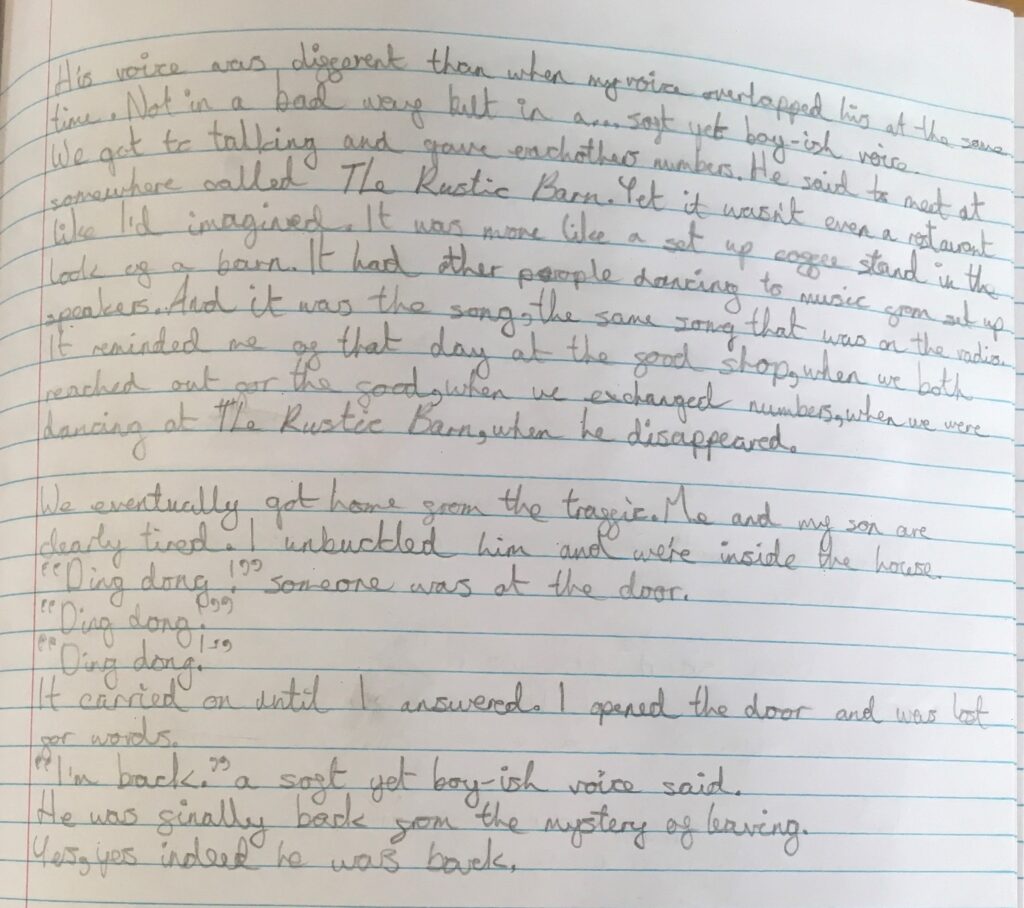 His voice was different than when my voice overlapped his at the same
time. Not in a bad way but in a... soft yet boy-ish voice.
We got to talking and gave eachothers numbers. He said to meet at
somewhere called The Rustic Barn. Yet it wasn't even a restaurant
like I'd imagined. It was more like a set up coffee stand in the
look of a barn. It had other people dancing to music from set up
speakers. And it was the song, the same song that was on the radio.
It reminded me of that day at the food shop, when we both
reached out for the food, when we exchanged numbers, when we were
dancing at The Rustic Barn, when he disappeared.
We eventually got home from the traffic. Me and my son are
clearly tired. I unbuckled him and we're inside the house.
"Ding dong!" someone was at the door.
"Ding dong!"
"Ding dong!"
It carried on until I answered. I opened the door and was lost
for words.
"I'm back." a soft yet boy-ish voice said.
He was finally back from the mystery of leaving.
Yes, yes indeed he was back.